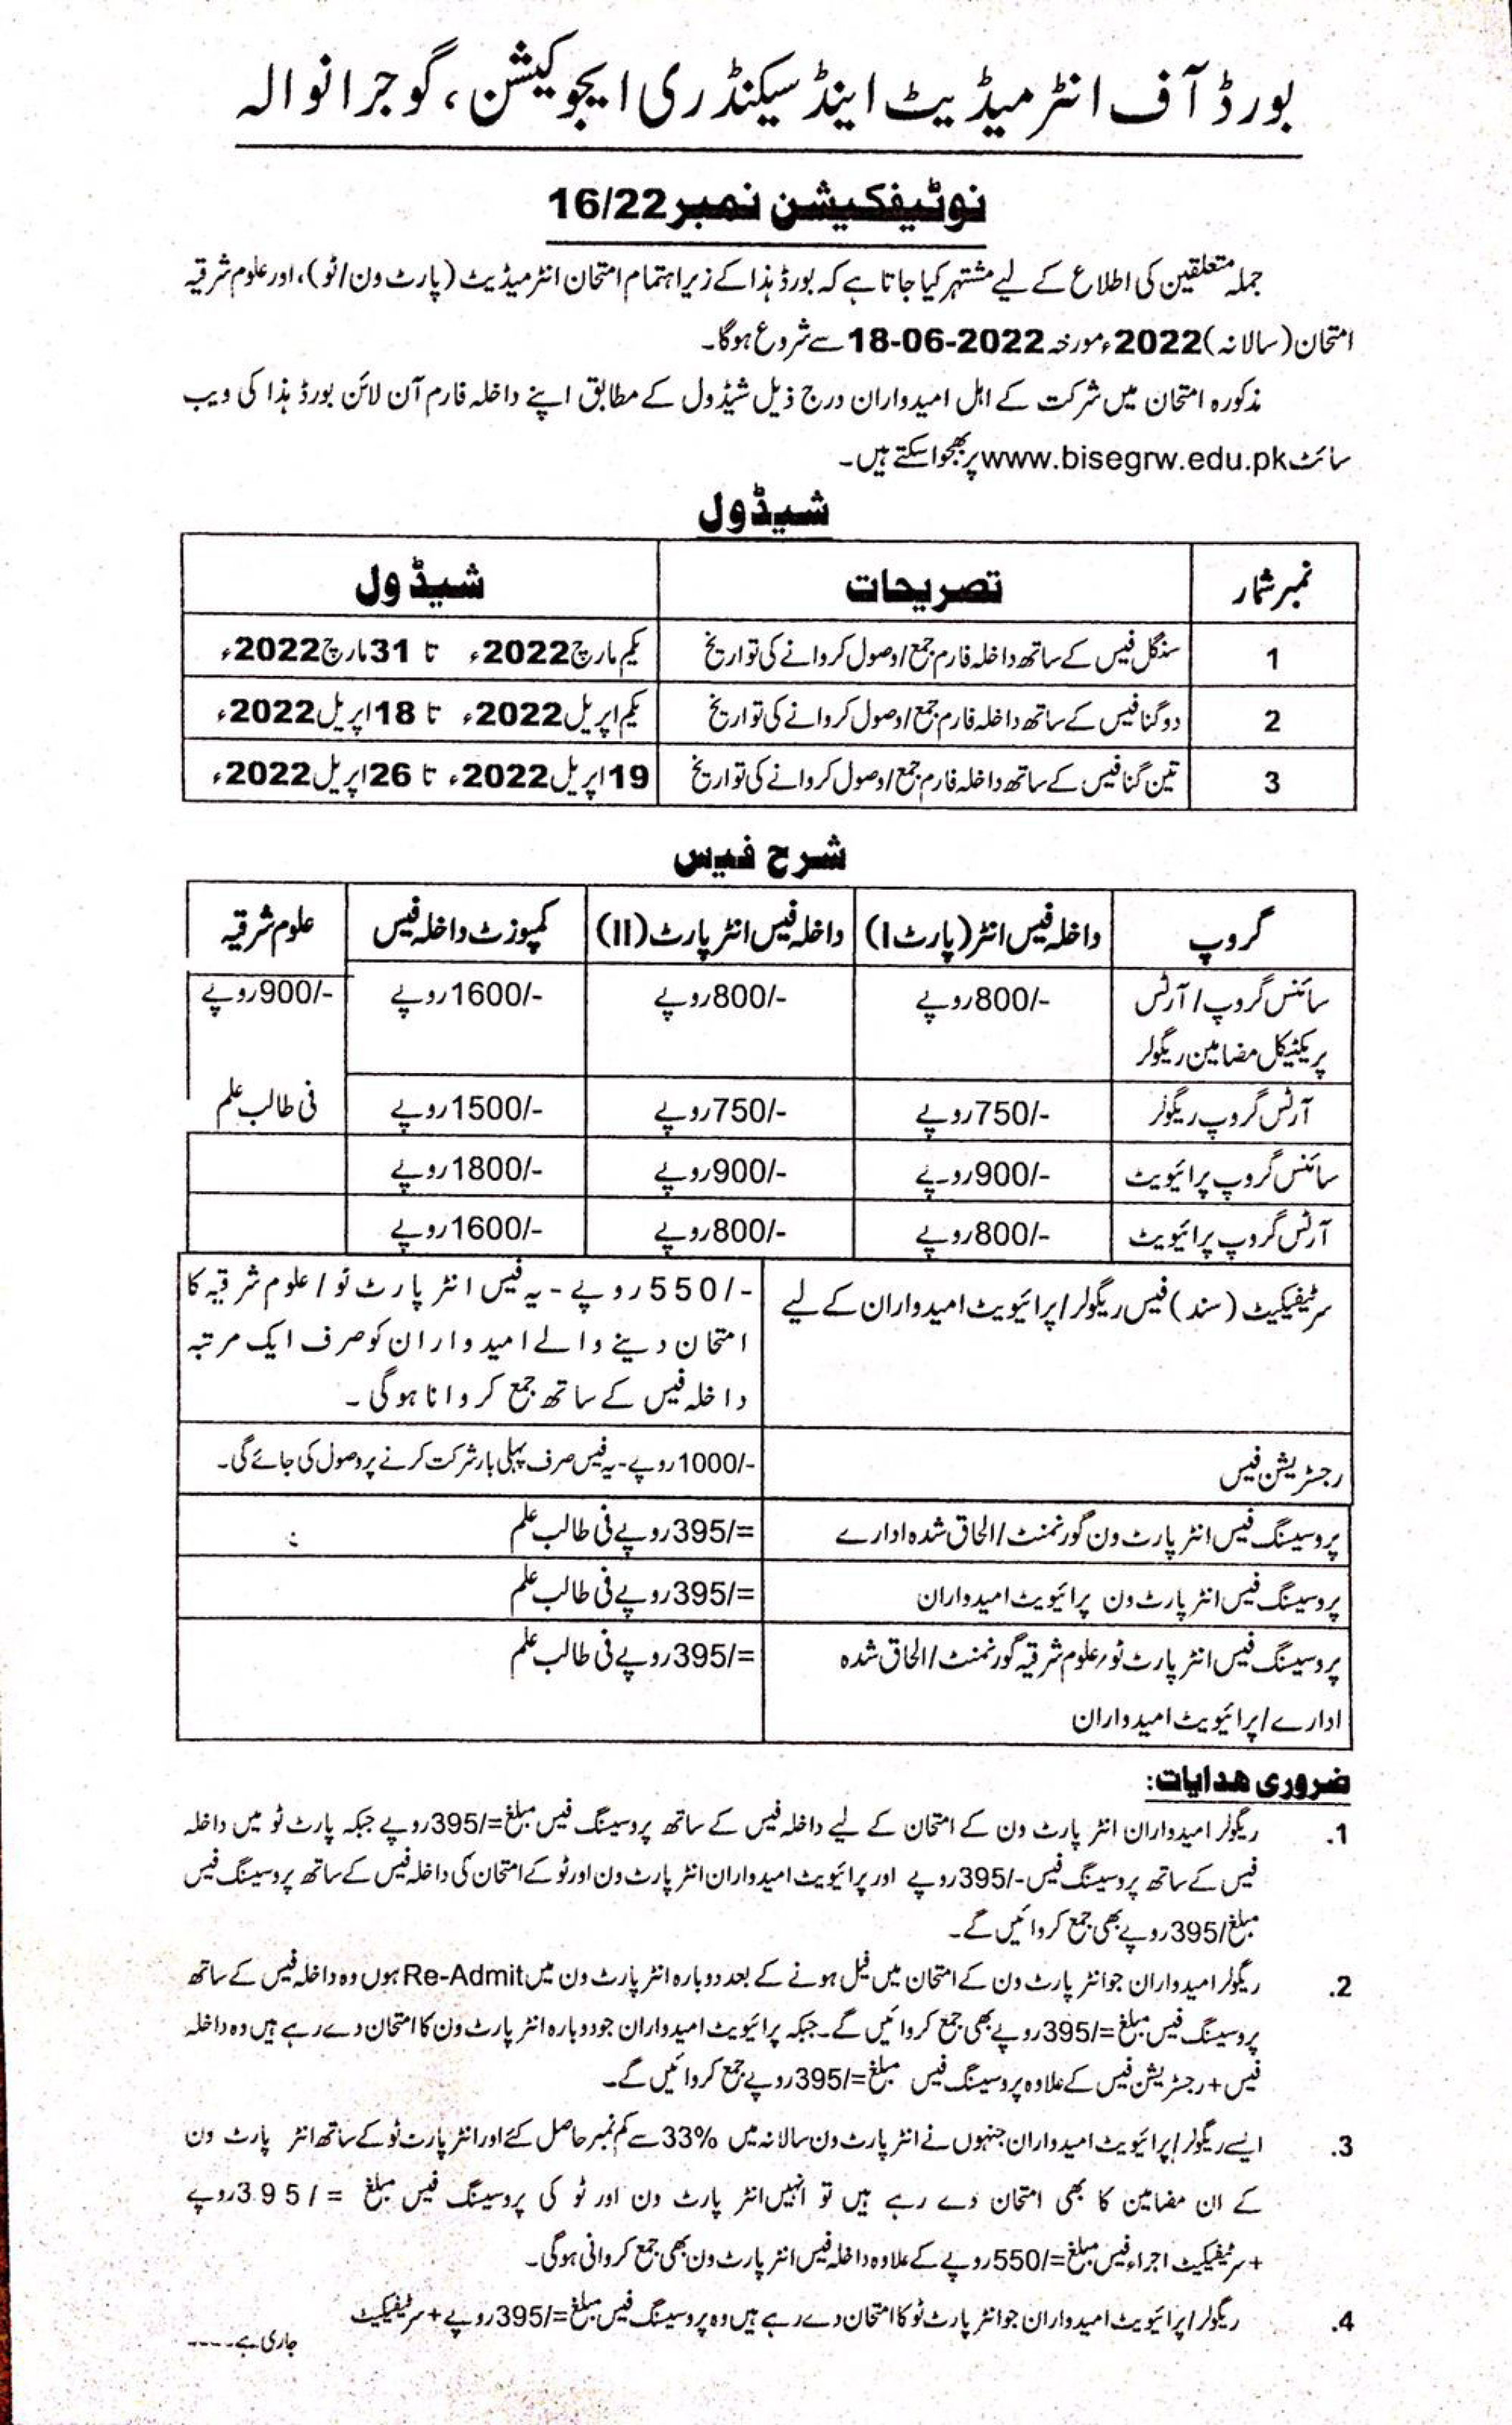 بورڈ آف انٹرمیڈیٹ اینڈ سیکنڈری ایجوکیشن، گوجرانوالہ
نوٹیفکیشن نمبر 16/22
جملہ متعلقین کی اطلاع کے لیے مشتہر کیا جاتا ہے کہ بورڈ ہذا کے زیر اہتمام امتحان انٹرمیڈیٹ (پارٹ ون/ٹو)، اور علوم شرقیہ
امتحان (سالانہ) 2022ء مورخہ 18-06-2022 سے شروع ہوگا۔
مذکورہ امتحان میں شرکت کے اہل امیدواران درج ذیل شیڈول کے مطابق اپنے داخلہ فارم آن لائن بورڈ ہذا کی ویب
سائٹ www.bisegrw.edu.pk پر بھجوا سکتے ہیں۔
شیڈول
نمبر شمار تصریحات شیڈول
1 سنگل فیس کے ساتھ داخلہ فارم جمع/وصول کروانے کی تواریخ یکم مارچ 2022ء تا 31 مارچ 2022ء
2 دوگنا فیس کے ساتھ داخلہ فارم جمع/وصول کروانے کی تواریخ یکم اپریل 2022ء تا 18 اپریل 2022ء
3 تین گنا فیس کے ساتھ داخلہ فارم جمع/وصول کروانے کی تواریخ 19 اپریل 2022ء تا 26 اپریل 2022ء
شرح فیس
گروپ داخلہ فیس انٹر (پارٹ I) داخلہ فیس انٹر پارٹ (II) کمپوزٹ داخلہ فیس علوم شرقیہ
سائنس گروپ/آرٹس 800/- روپے 800/- روپے 1600/- روپے 900/- روپے
پریکٹیکل مضامین ریگولر
آرٹس گروپ ریگولر 750/- روپے 750/- روپے 1500/- روپے فی طالب علم
سائنس گروپ پرائیویٹ 900/- روپے 900/- روپے 1800/- روپے
آرٹس گروپ پرائیویٹ 800/- روپے 800/- روپے 1600/- روپے
سرٹیفکیٹ (سند) فیس ریگولر/پرائیویٹ امیدواران کے لیے 550/- روپے - یہ فیس انٹر پارٹ ٹو/علوم شرقیہ کا
امتحان دینے والے امیدواران کو صرف ایک مرتبہ
داخلہ فیس کے ساتھ جمع کروانا ہوگی۔
رجسٹریشن فیس 1000/- روپے - یہ فیس صرف پہلی بار شرکت کرنے پر وصول کی جائے گی۔
پروسیسنگ فیس انٹر پارٹ ون گورنمنٹ/الحاق شدہ ادارے 395/= روپے فی طالب علم
پروسیسنگ فیس انٹر پارٹ ون پرائیویٹ امیدواران 395/= روپے فی طالب علم
پروسیسنگ فیس انٹر پارٹ ٹو/علوم شرقیہ گورنمنٹ/الحاق شدہ 395/= روپے فی طالب علم
ادارے/پرائیویٹ امیدواران
ضروری ھدایات:
1. ریگولر امیدواران انٹر پارٹ ون کے امتحان کے لیے داخلہ فیس کے ساتھ پروسیسنگ فیس مبلغ 395/= روپے جبکہ پارٹ ٹو میں داخلہ
فیس کے ساتھ پروسیسنگ فیس 395/- روپے اور پرائیویٹ امیدواران انٹر پارٹ ون اور ٹو کے امتحان کی داخلہ فیس کے ساتھ پروسیسنگ فیس
مبلغ 395/ روپے بھی جمع کروائیں گے۔
2. ریگولر امیدواران جو انٹر پارٹ ون کے امتحان میں فیل ہونے کے بعد دوبارہ انٹر پارٹ ون میں Re-Admit ہوں وہ داخلہ فیس کے ساتھ
پروسیسنگ فیس مبلغ 395/= روپے بھی جمع کروائیں گے۔ جبکہ پرائیویٹ امیدواران جو دوبارہ انٹر پارٹ ون کا امتحان دے رہے ہیں وہ داخلہ
فیس + رجسٹریشن فیس کے علاوہ پروسیسنگ فیس مبلغ 395/= روپے جمع کروائیں گے۔
3. ایسے ریگولر/پرائیویٹ امیدواران جنہوں نے انٹر پارٹ ون سالانہ میں 33% سے کم نمبر حاصل کئے اور انٹر پارٹ ٹو کے ساتھ انٹر پارٹ ون
کے ان مضامین کا بھی امتحان دے رہے ہیں تو انہیں انٹر پارٹ ون اور ٹو کی پروسیسنگ فیس مبلغ 395/= روپے
+ سرٹیفکیٹ اجراء فیس مبلغ 550/= روپے کے علاوہ داخلہ فیس انٹر پارٹ ون بھی جمع کروانی ہوگی۔
4. ریگولر/پرائیویٹ امیدواران جو انٹر پارٹ ٹو کا امتحان دے رہے ہیں وہ پروسیسنگ فیس مبلغ 395/= روپے + سرٹیفکیٹ
جاری ہے۔۔۔۔